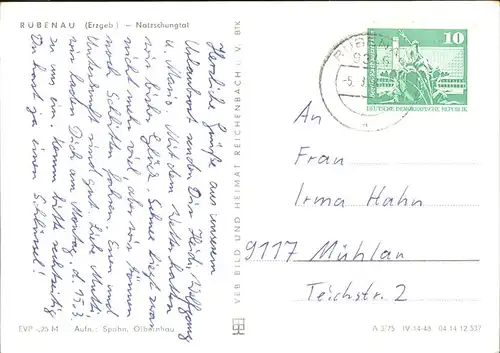 RÜBENAU (Erzgeb.) — Natzschungtal
Herzliche Grüße aus unserem
Urlaubsort senden Dir Heidi, Wolfgang
u. Mario. Mit dem Wetter hatten
wir bisher Glück. Schnee liegt zwar
nicht mehr viel, aber wir können
noch Schlitten fahren. Essen und
Unterkunft sind gut. Liebe Mutti,
wir laden Dich am Montag, d. 15.3.
zu uns ein. Komm bitte rechtzeitig
Du hast ja einen Schlüssel!
VEB BILD UND HEIMAT REICHENBACH i. V. BTK
10
DEUTSCHE DEMOKRATISCHE REPUBLIK
An
Frau
Irma Hahn
9117 Mühlau
Teichstr. 2
EVP -,25 M Aufn.: Spahn, Olbernhau
A 3/75 IV-14-48 04 14 12 537